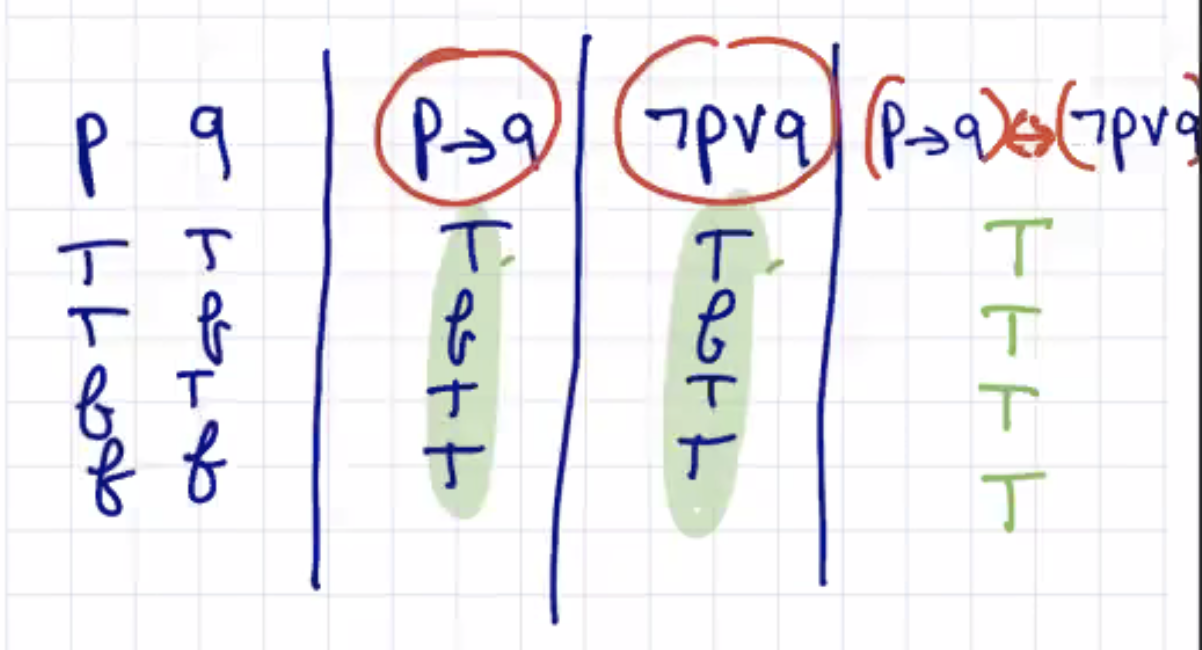 p q p→q ¬p∨q (p→q)↔(¬p∨q
T T T T T
T f f f T
f T T T T
f f T T T